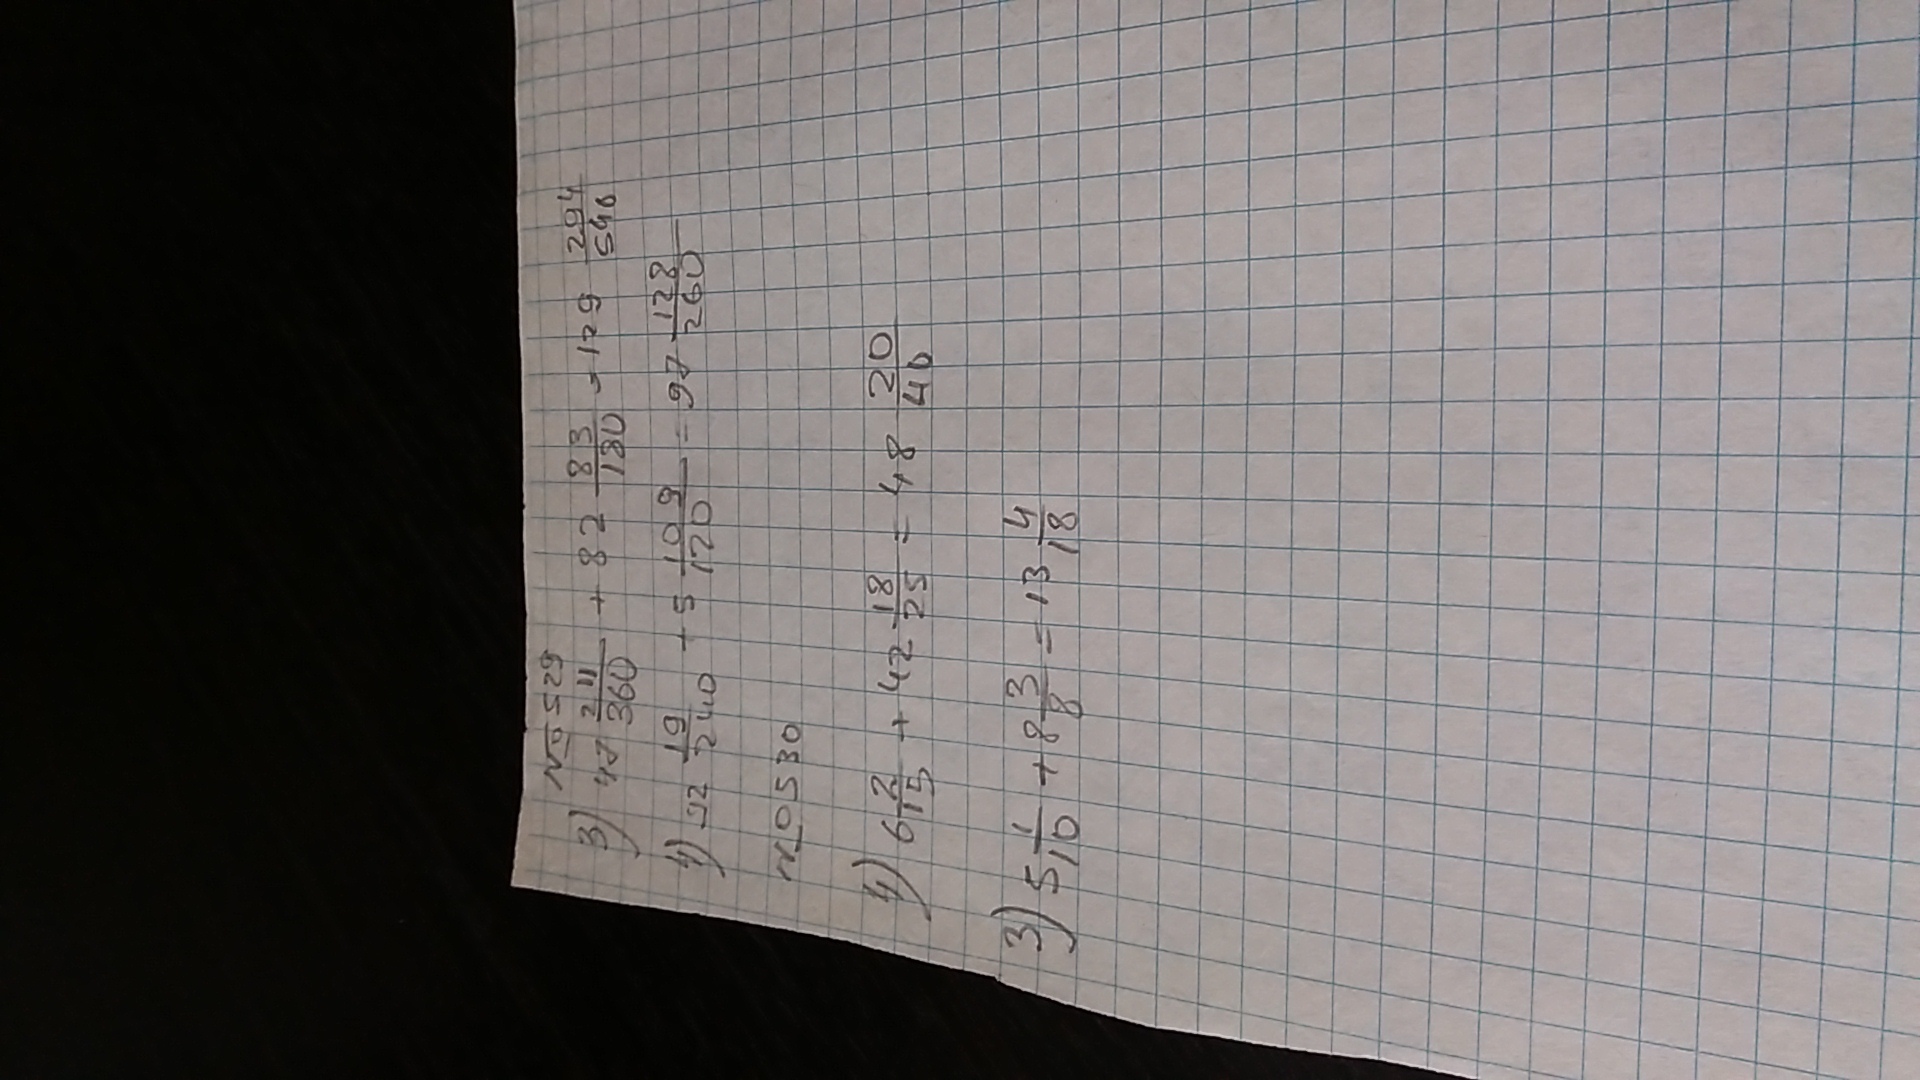 №529
3) 47 211/360 + 82 83/180 = 129 294/540
4) 92 19/240 + 5 109/120 = 97 128/260
№0530
4) 6 2/15 + 42 18/25 = 48 20/40
3) 5 1/10 + 8 3/8 = 13 4/18